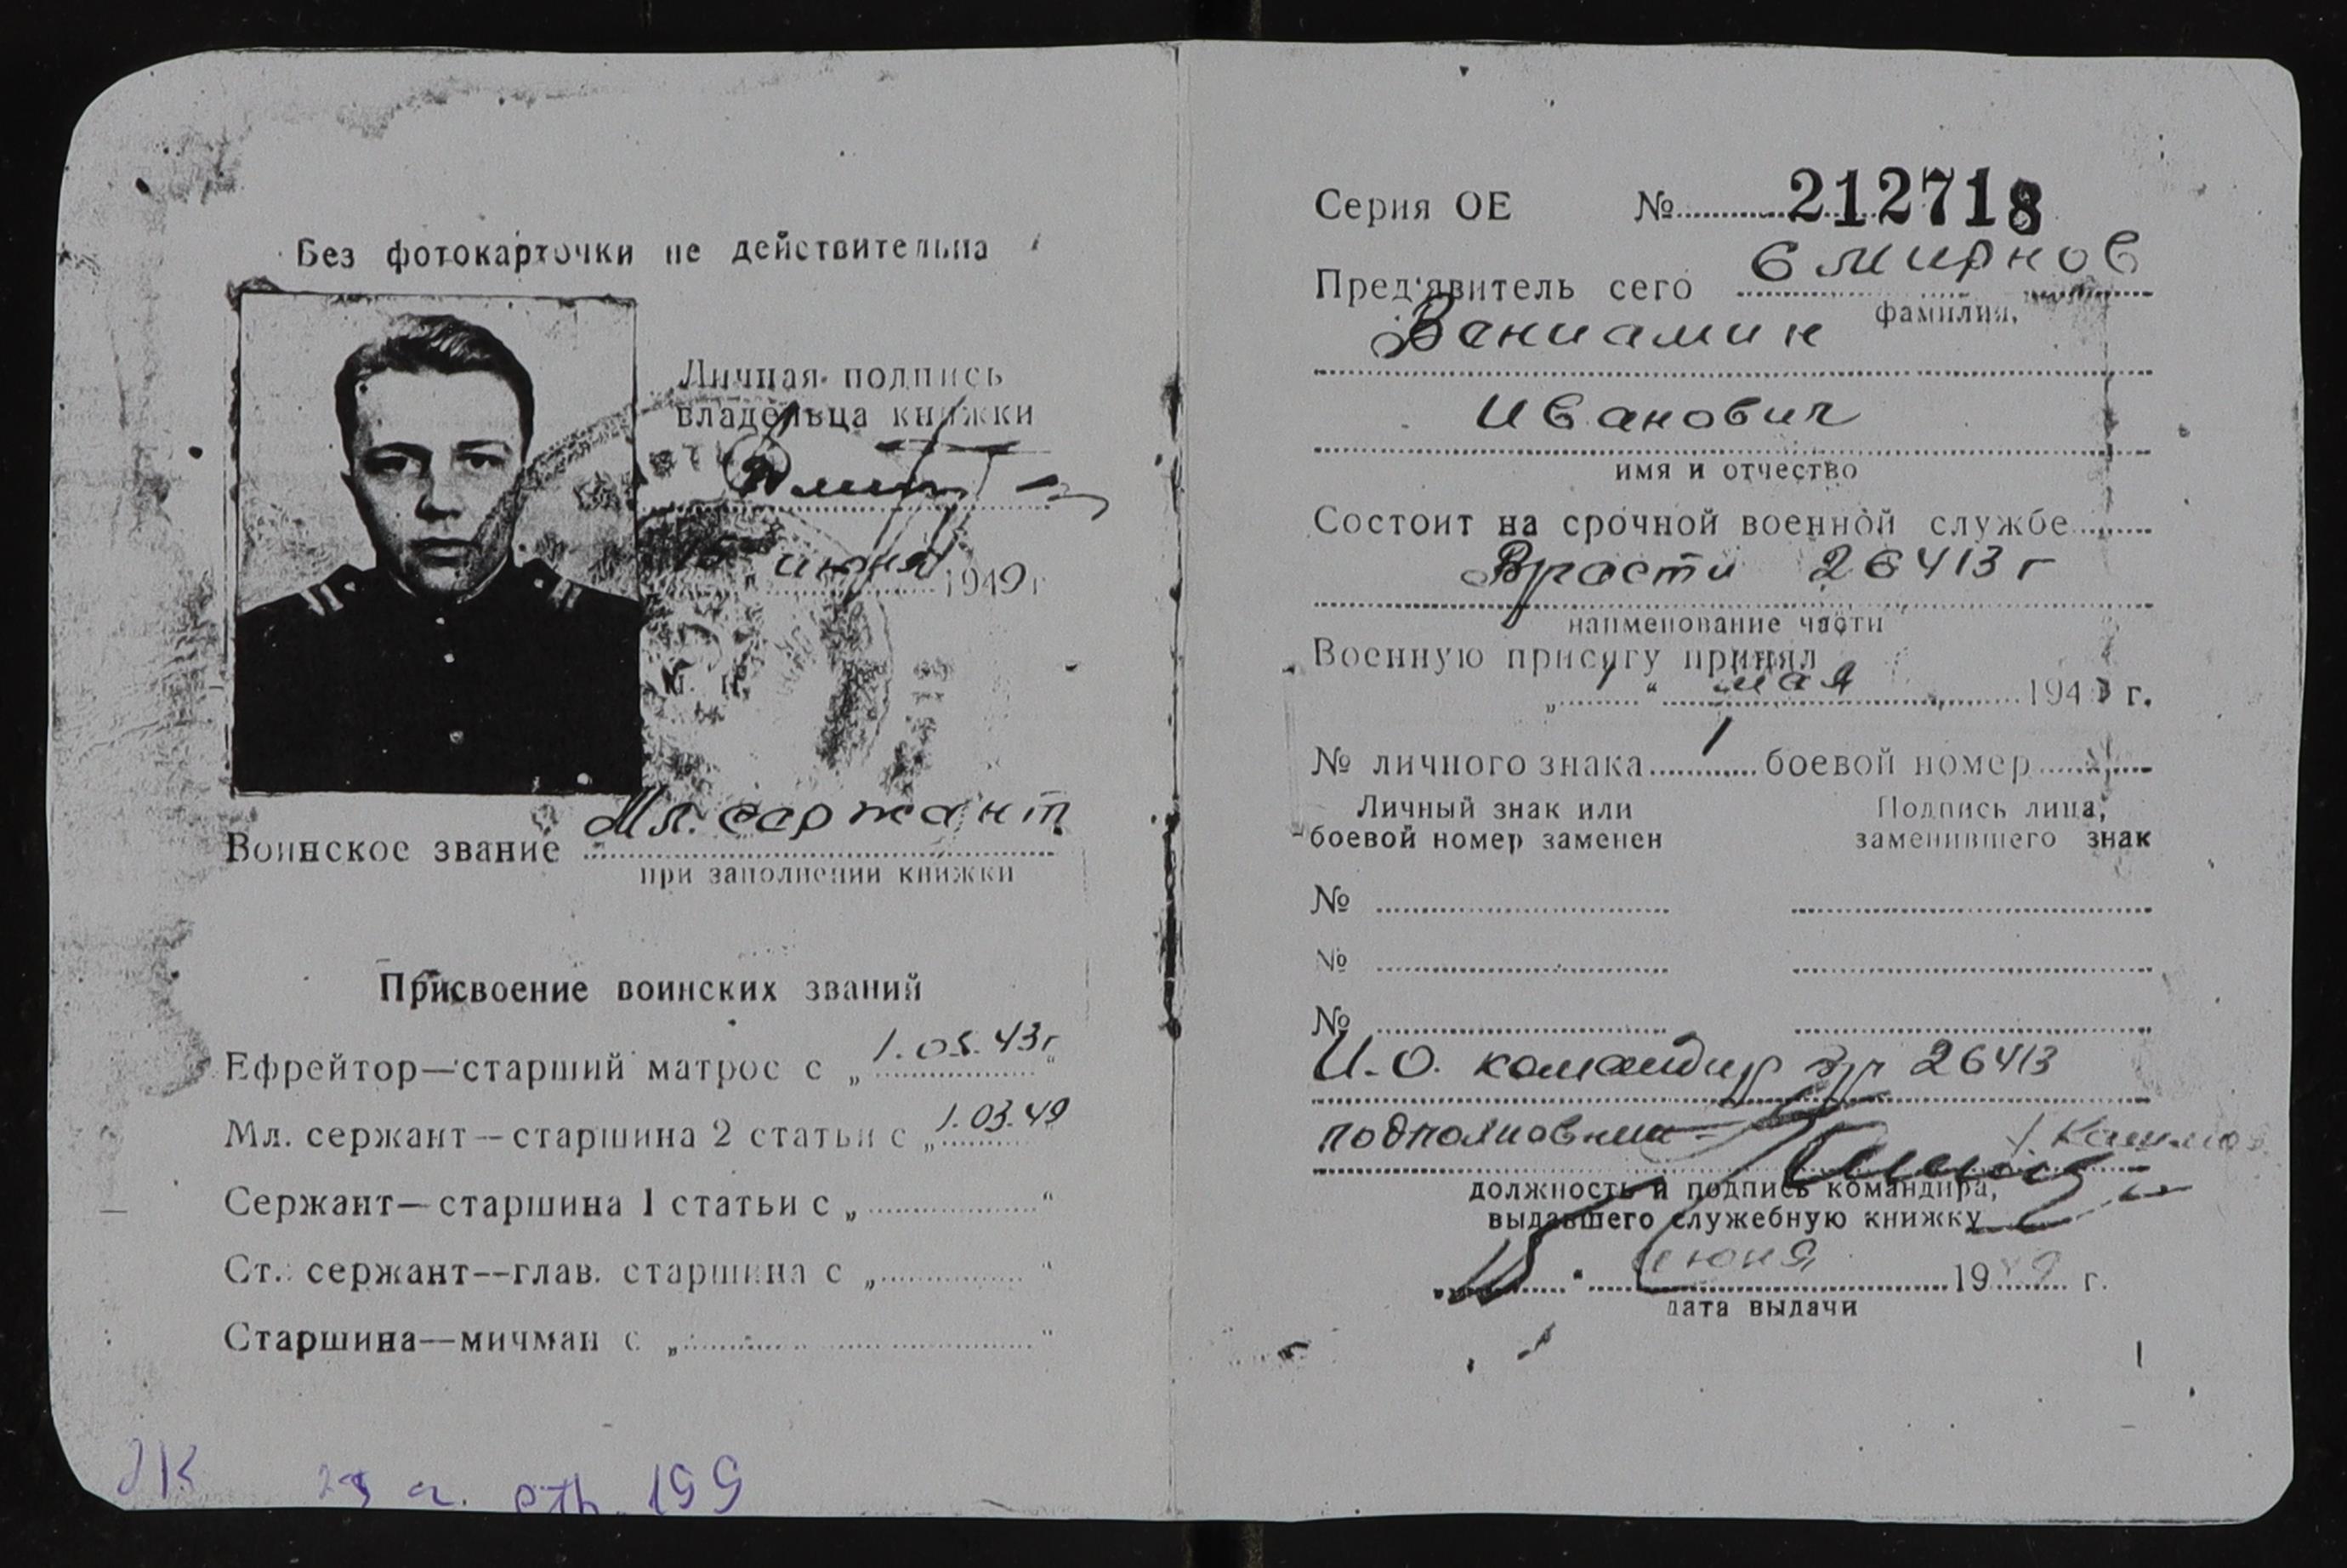 Без фотокарточки не действительна
Личная подпись
владельца книжки
июня 1949 г
Воинское звание Мл. сержант
при заполнении книжки
Присвоение воинских званий
Ефрейтор—старший матрос с „ 1.05.43г “
Мл. сержант—старшина 2 статьи с „ 1.03.49
Сержант—старшина 1 статьи с „ “
Ст. сержант—глав. старшина с „ “
Старшина—мичман с „ “
199
Серия ОЕ № 212718
Пред'явитель сего Смирнов
фамилия,
Вениамин
Иванович
имя и отчество
Состоит на срочной военной службе
26413
наименование части
Военную присягу принял
„ “ мая 194 г.
№ личного знака боевой номер
Личный знак или Подпись лица,
боевой номер заменен заменившего знак
№
№
№
И.О. командир 26413
подполковник
должность и подпись командира,
выдавшего служебную книжку
„ “ июня 1949 г.
дата выдачи